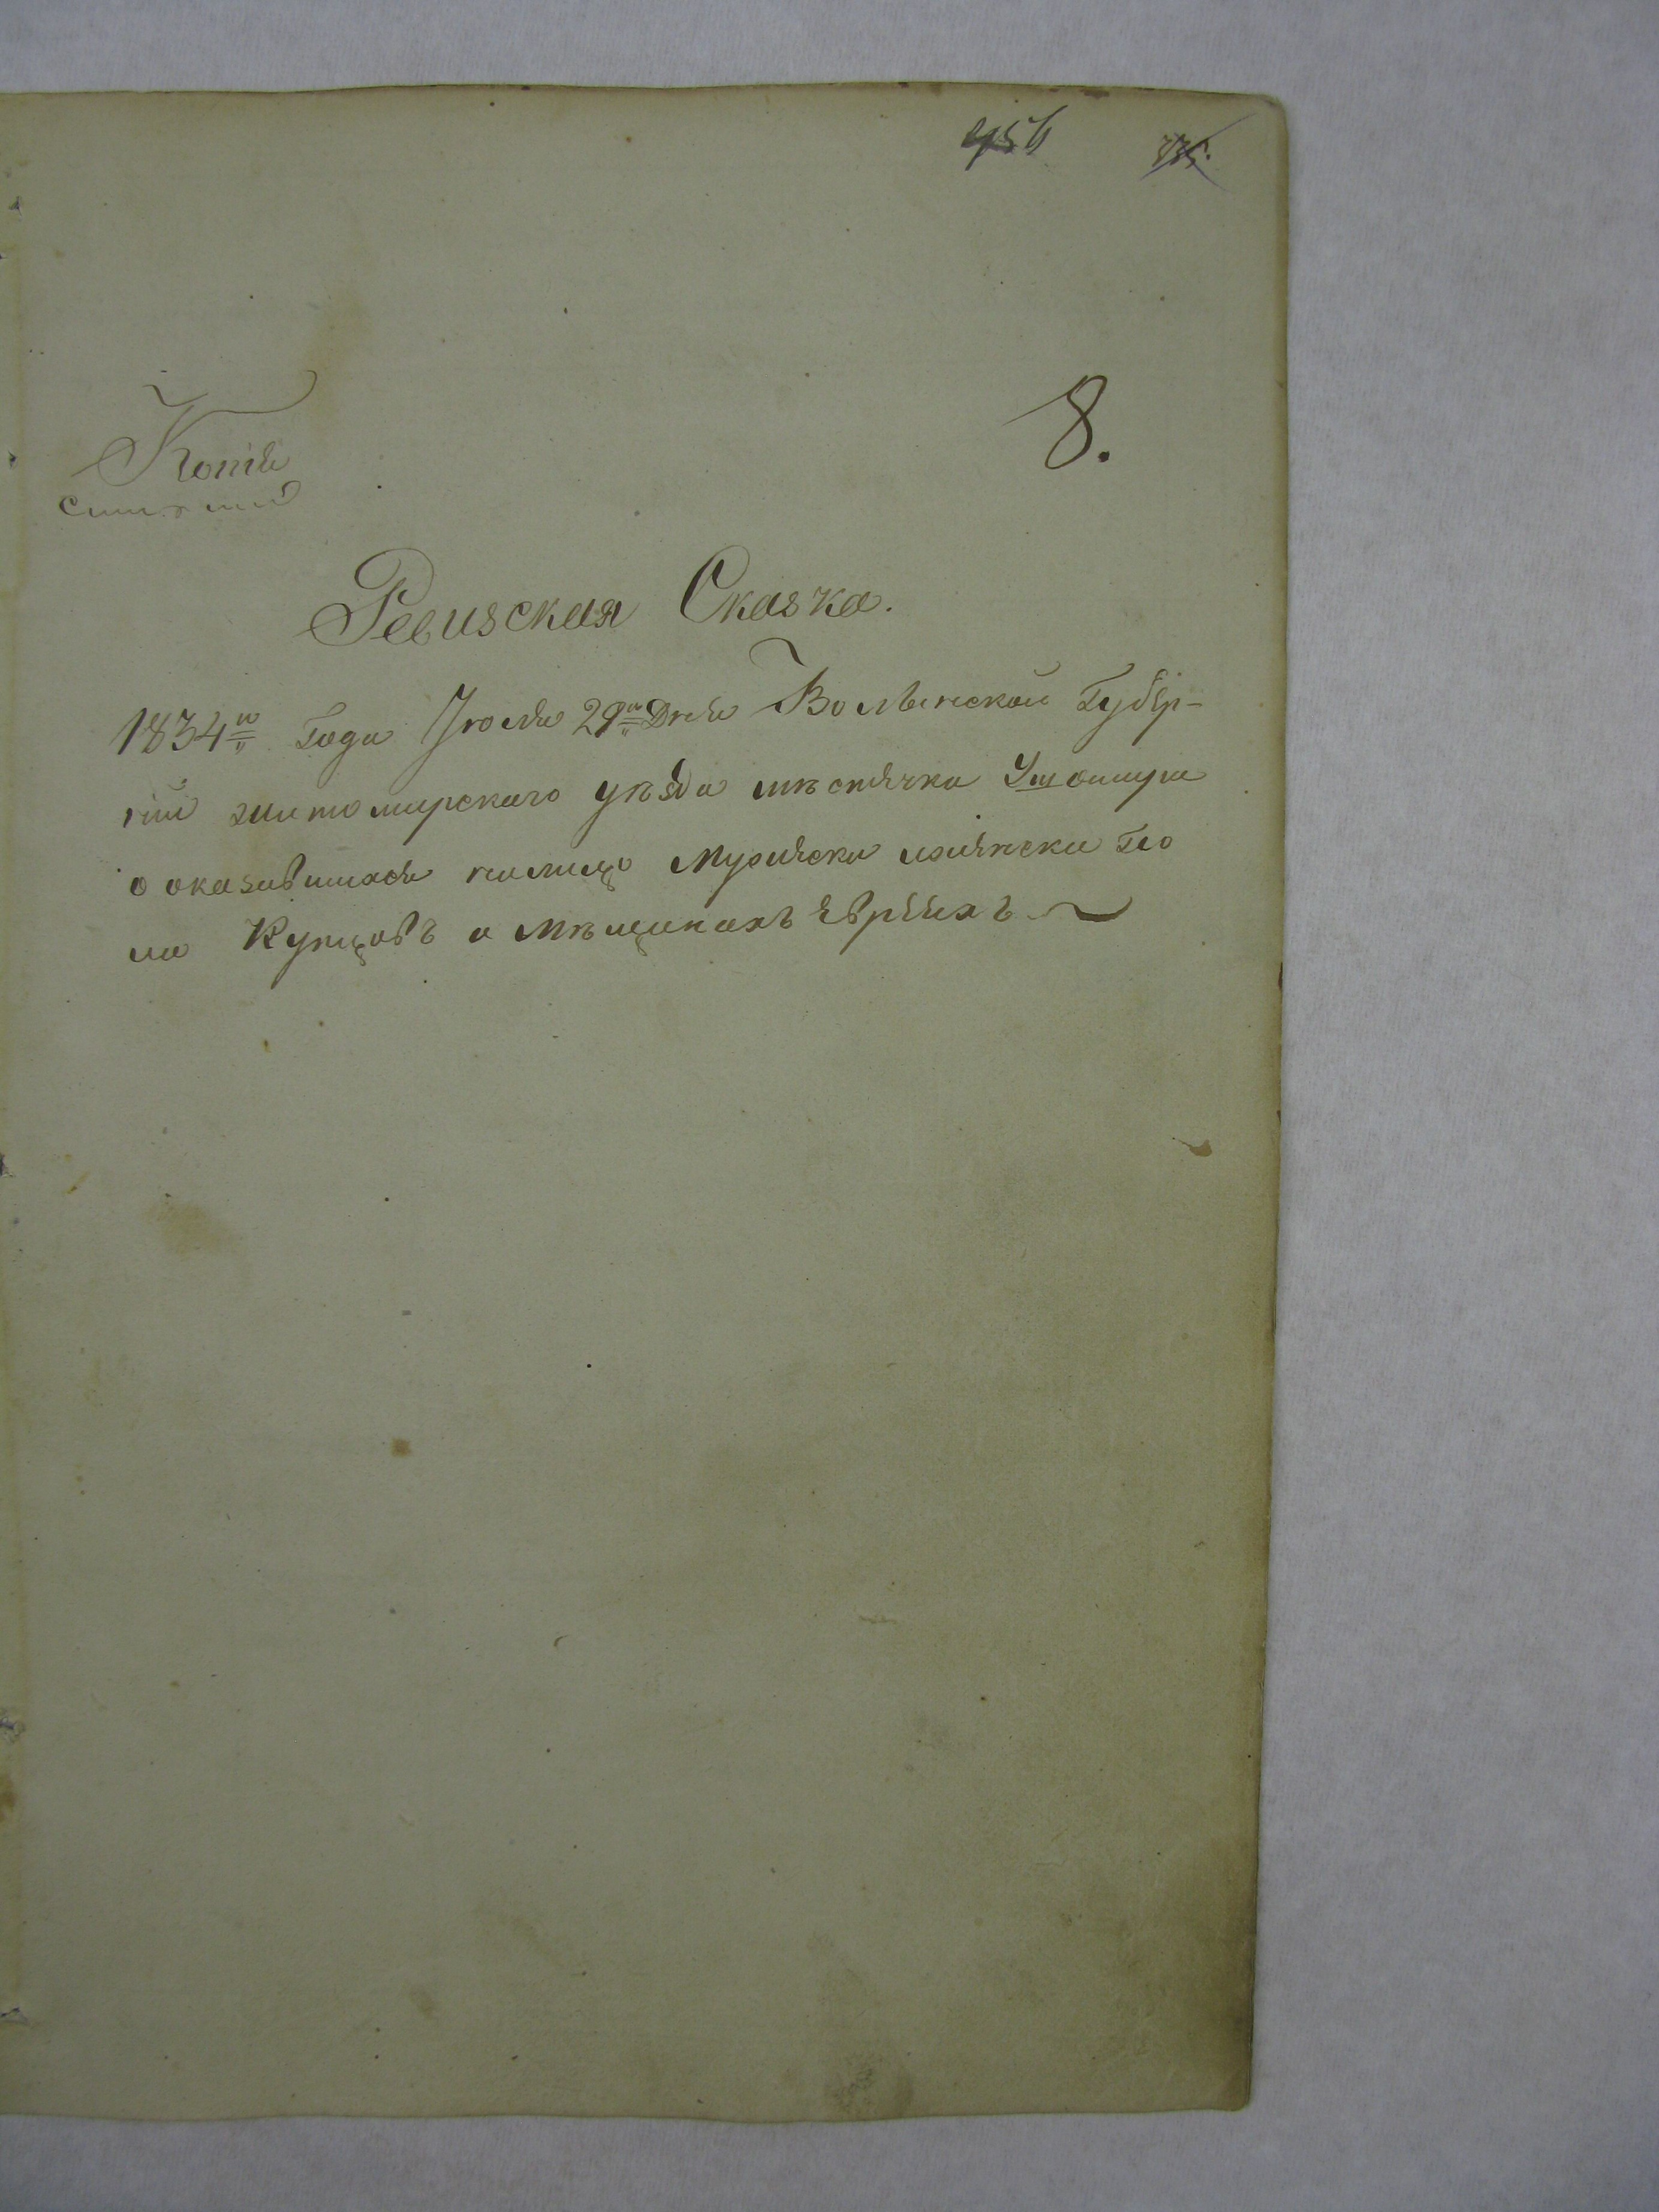 956
8.
Копія
Ревизская Сказка.
1834го Года Іюля 29го Дня Волынской Губер-
ніи житомирскаго уѣзда мѣстечка Ушомира
о оказавшихся на лицо Мужеска и женска По
ла Купцовъ и Мѣщанахъ Евреяхъ